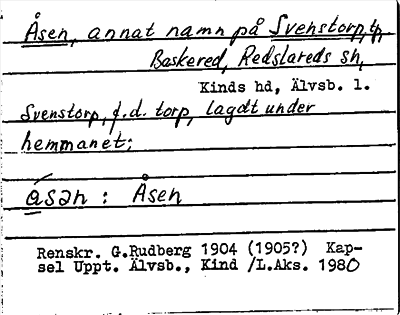 Åsen, annat namn på Svenstorp, tp,
Baskered, Redslareds sn,
Kinds hd, Älvsb. l.
Svenstorp, f.d. torp, lagdt under
hemmanet;
åsən : Åsen
Renskr. G.Rudberg 1904 (1905?) Kap-
sel Uppt. Älvsb., Kind /L.Aks. 1980